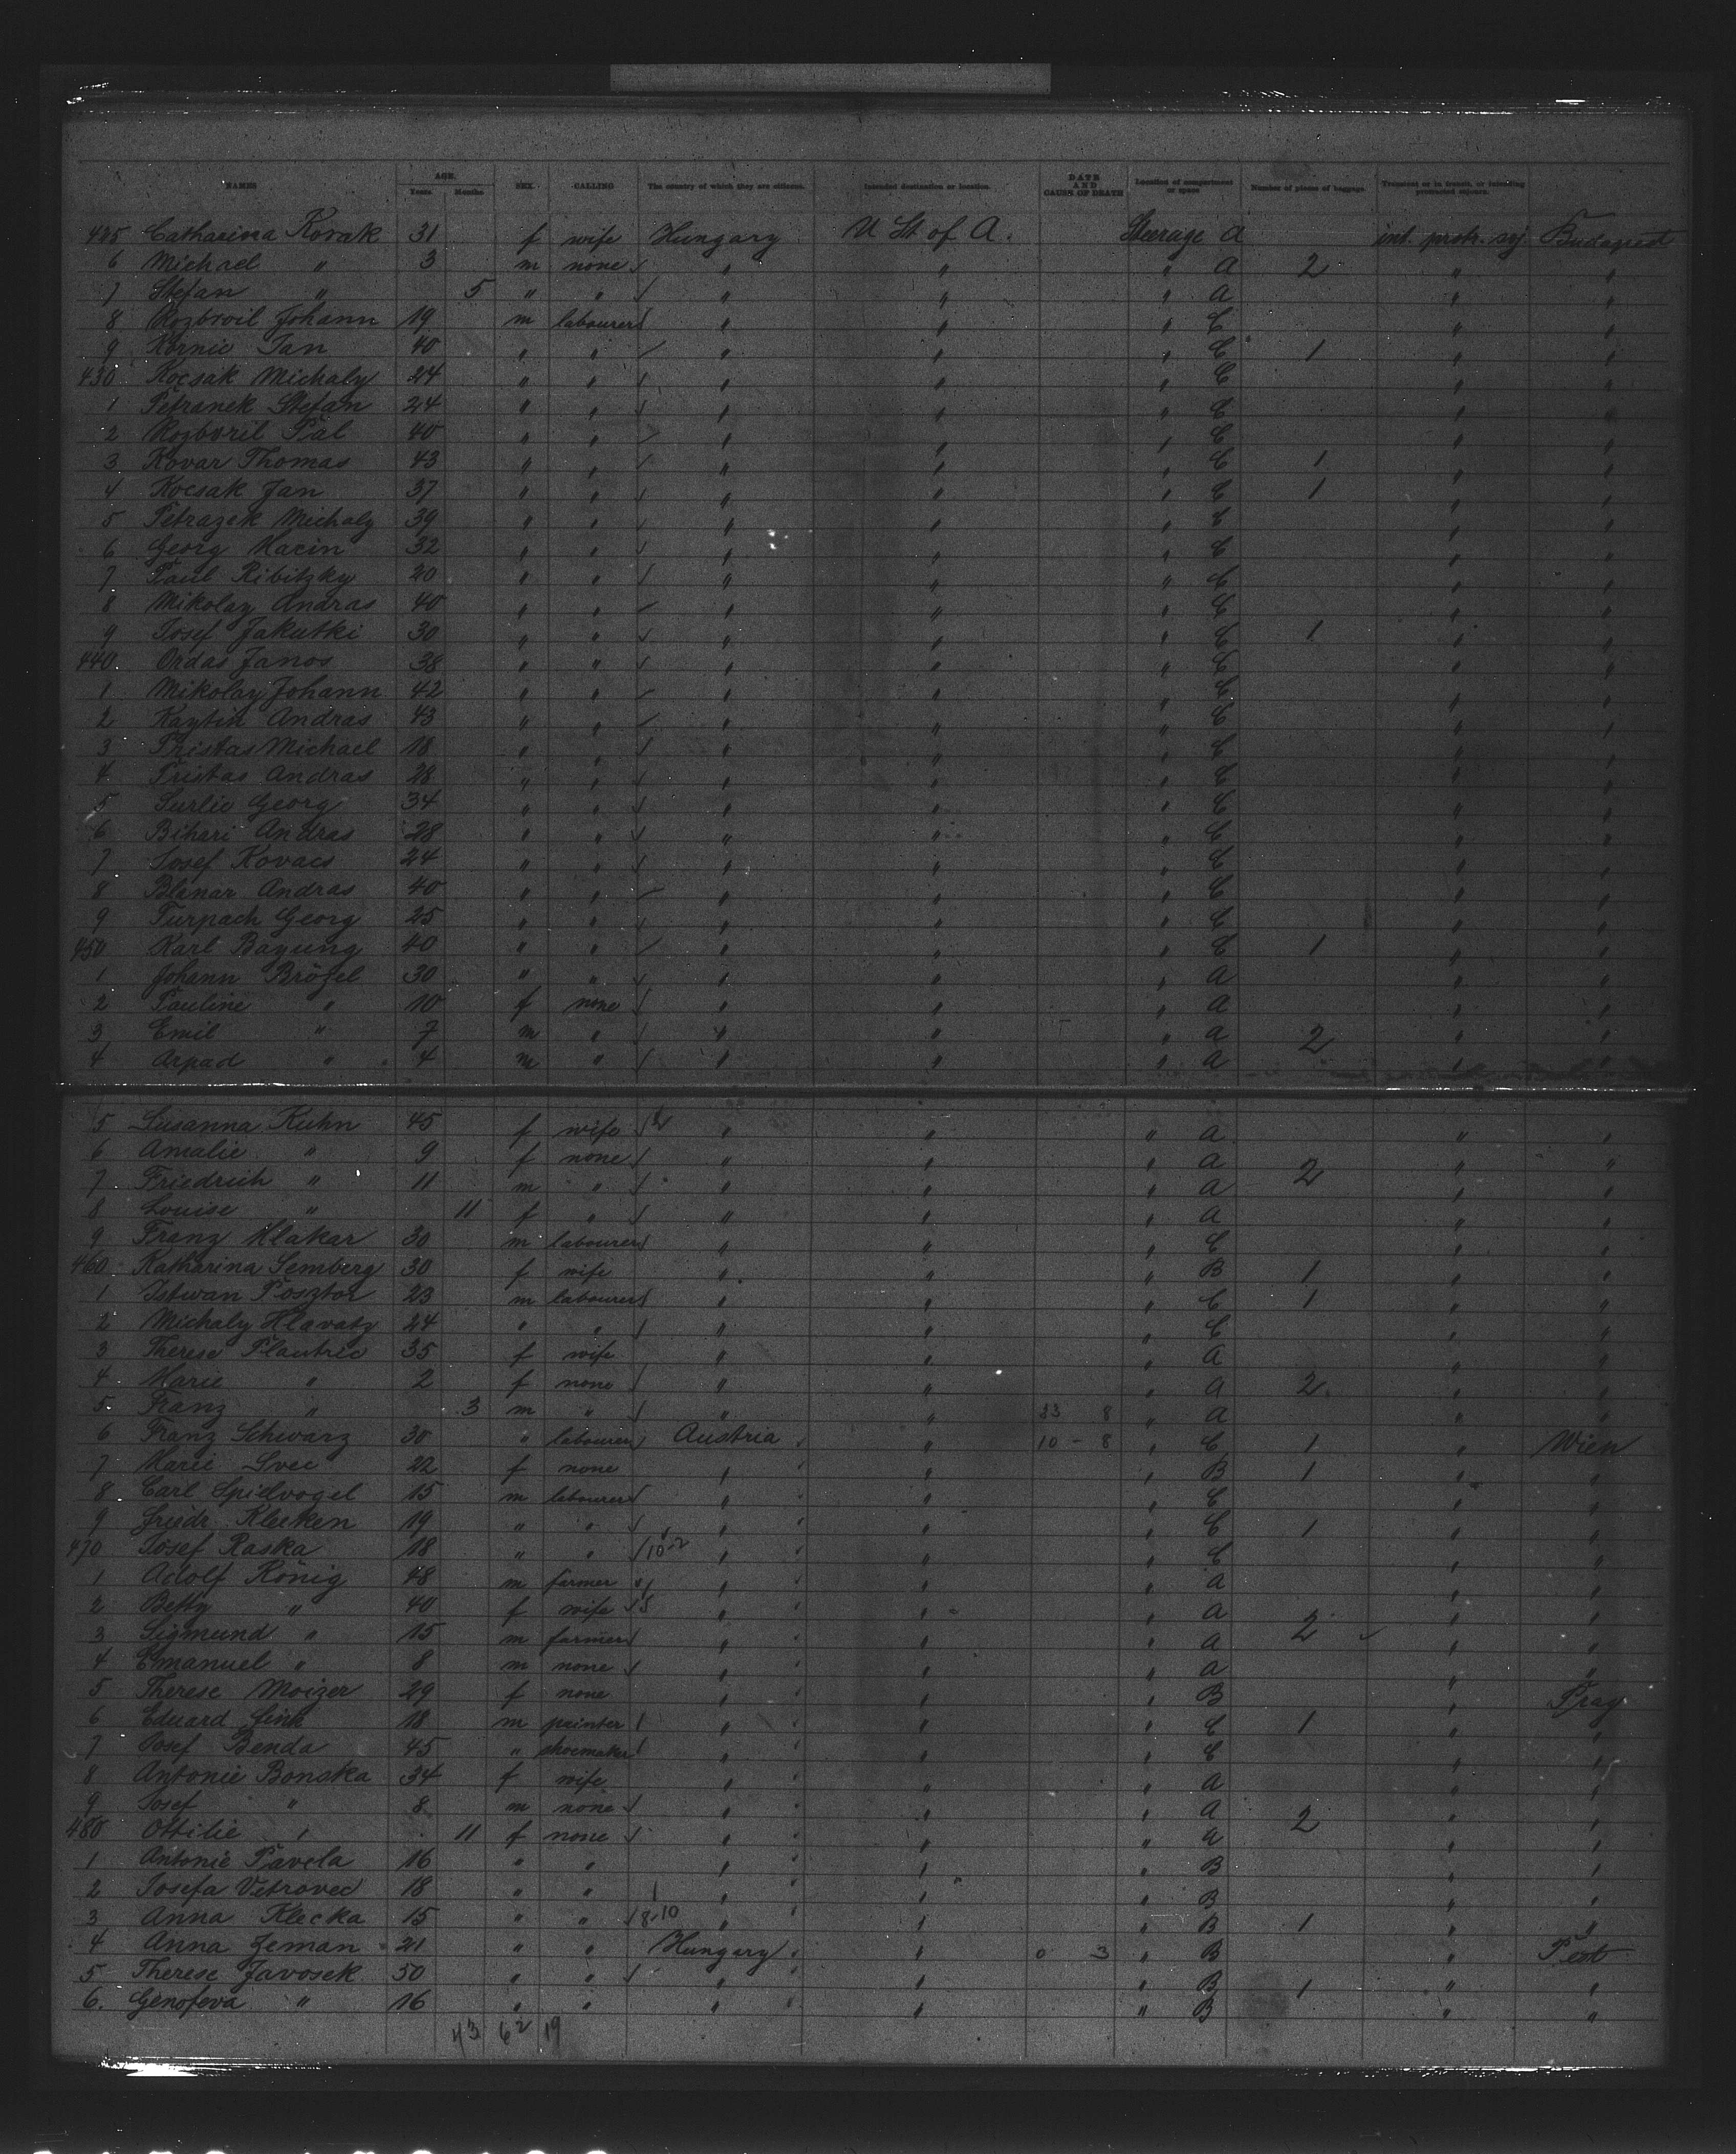 NAMES AGE. Years Months SEX. CALLING The country of which they are citizens. Intended destination or location. DATE AND CAUSE OF DEATH Location of compartment or space Number of pieces of baggage. Transient or in transit, or intending protracted sojourn.
425 Catharina Kovak 31 f wife Hungary U St of A. Steerage A int. protr. soj. Budapest
6 Michael " 3 m none " " " A 2 " "
7 Stefan " 5 " " " " " A " "
8 Johann 19 m labourer " " " C " "
9 Kornic Jan 40 " " " " " C 1 " "
430 Kocsak Michaly 24 " " " " " C " "
1 Petranek Stefan 24 " " " " " C " "
2 Rozboril Pal 40 " " " " " C " "
3 Kovar Thomas 43 " " " " " C 1 " "
4 Kocsak Jan 37 " " " " " C 1 " "
5 Petrazek Michaly 39 " " " " " C " "
6 Georg Macin 32 " " " " " C " "
7 Paul Ribitzky 20 " " " " " C " "
8 Mikolay Andras 40 " " " " " C " "
9 Josef Jakutki 30 " " " " " C 1 " "
440 Ordas Janos 38 " " " " " C " "
1 Mikolay Johann 42 " " " " " C " "
2 Kaytin Andras 43 " " " " " C " "
3 Tristas Michael 18 " " " " " C " "
4 Tristas Andras 28 " " " " " C " "
5 Surlic Georg 34 " " " " " C " "
6 Bihari Andras 28 " " " " " C " "
7 Josef Kovacs 24 " " " " " C " "
8 Blanar Andras 40 " " " " " C " "
9 Turpach Georg 25 " " " " " C " "
450 Karl Bayung 40 " " " " " C 1 " "
1 Johann Brözel 30 " " " " " A " "
2 Pauline " 10 f none " " " A " "
3 Emil " 7 m " " " " A 2 " "
4 Arpad " 4 m " " " " A " "
5 Susanna Kuhn 45 f wife " " " A " "
6 Amalie " 9 f none " " " A 2 " "
7 Friedrich " 11 m " " " " A " "
8 Louise " 11 f " " " " A " "
9 Franz Mlakar 30 m labourer " " " C " "
460 Katharina Semberg 30 f wife " " " B 1 " "
1 Istwan Posztor 23 m labourer " " " C 1 " "
2 Michaly Hlavaty 24 " " " " " C " "
3 Therese Plautric 35 f wife " " " A " "
4 Marie " 2 f none " " " A 2 " "
5 Franz " 3 m " " " 33 8 " A " "
6 Franz Schwarz 30 " labourer Austria " 10 - 8 " C 1 " Wien
7 Marie Svec 22 f none " " " B 1 " "
8 Carl Spielvogel 15 m labourer " " " C " "
9 Friedr. Klecken 19 " " " " " C 1 " "
470 Josef Raska 18 " " 10-2 " " " C " "
1 Adolf König 48 m farmer " " " A " "
2 Betty " 40 f wife " " " A 2 " "
3 Sigmund " 15 m farmer " " " A " "
4 Emanuel " 8 m none " " " A " "
5 Therese Moizer 29 f none " " " B " Prag
6 Eduard Fink 18 m painter " " " C 1 " "
7 Josef Benda 45 " shoemaker " " " C " "
8 Antonie Bonaka 34 f wife " " " A " "
9 Josef " 8 m none " " " A 2 " "
480 Ottilie " 11 f none " " " A " "
1 Antonie Pavela 16 " " " " " B " "
2 Josefa Vetrovec 18 " " " " " B " "
3 Anna Klecka 15 " " 8-10 " " " B 1 " "
4 Anna Zeman 21 " " Hungary " 0 3 " B " Pest
5 Therese Javosek 50 " " " " " B 1 " "
6. Genofeva " 16 " " " " " B " "
43 62 19